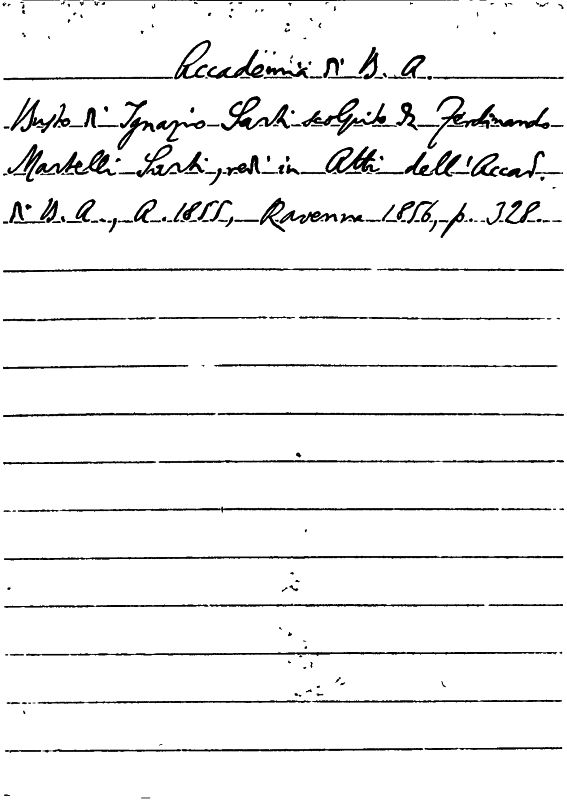 Accademia di B. A.
Busto di Ignazio Sarti scolpito da Ferdinando
Martelli Sarti, vedi in Atti dell'Accad.
di B. A., A. 1855, Ravenna 1856, p. 328.